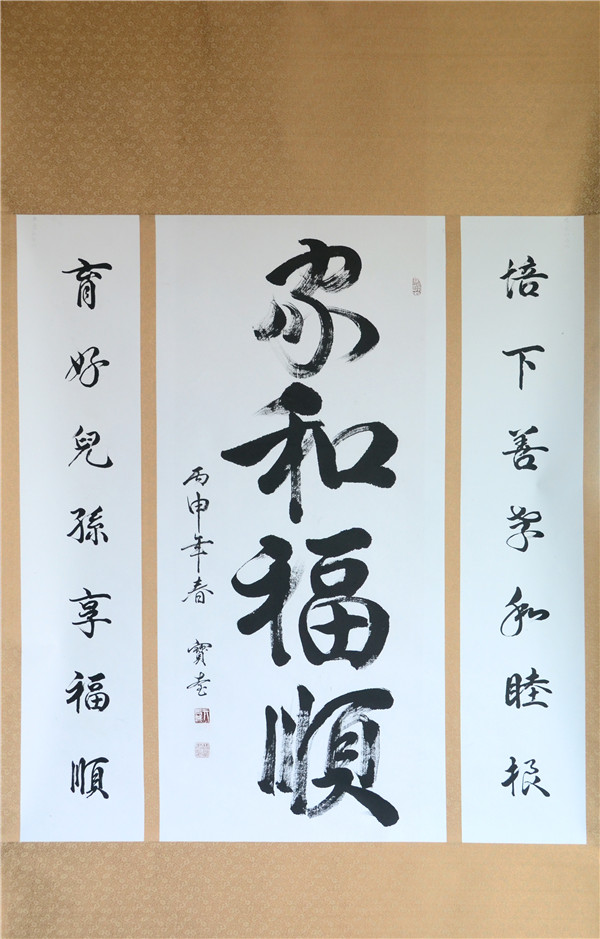 培下善孝和睦根
家和福順
丙申年春 寶
育好兒孫享福順